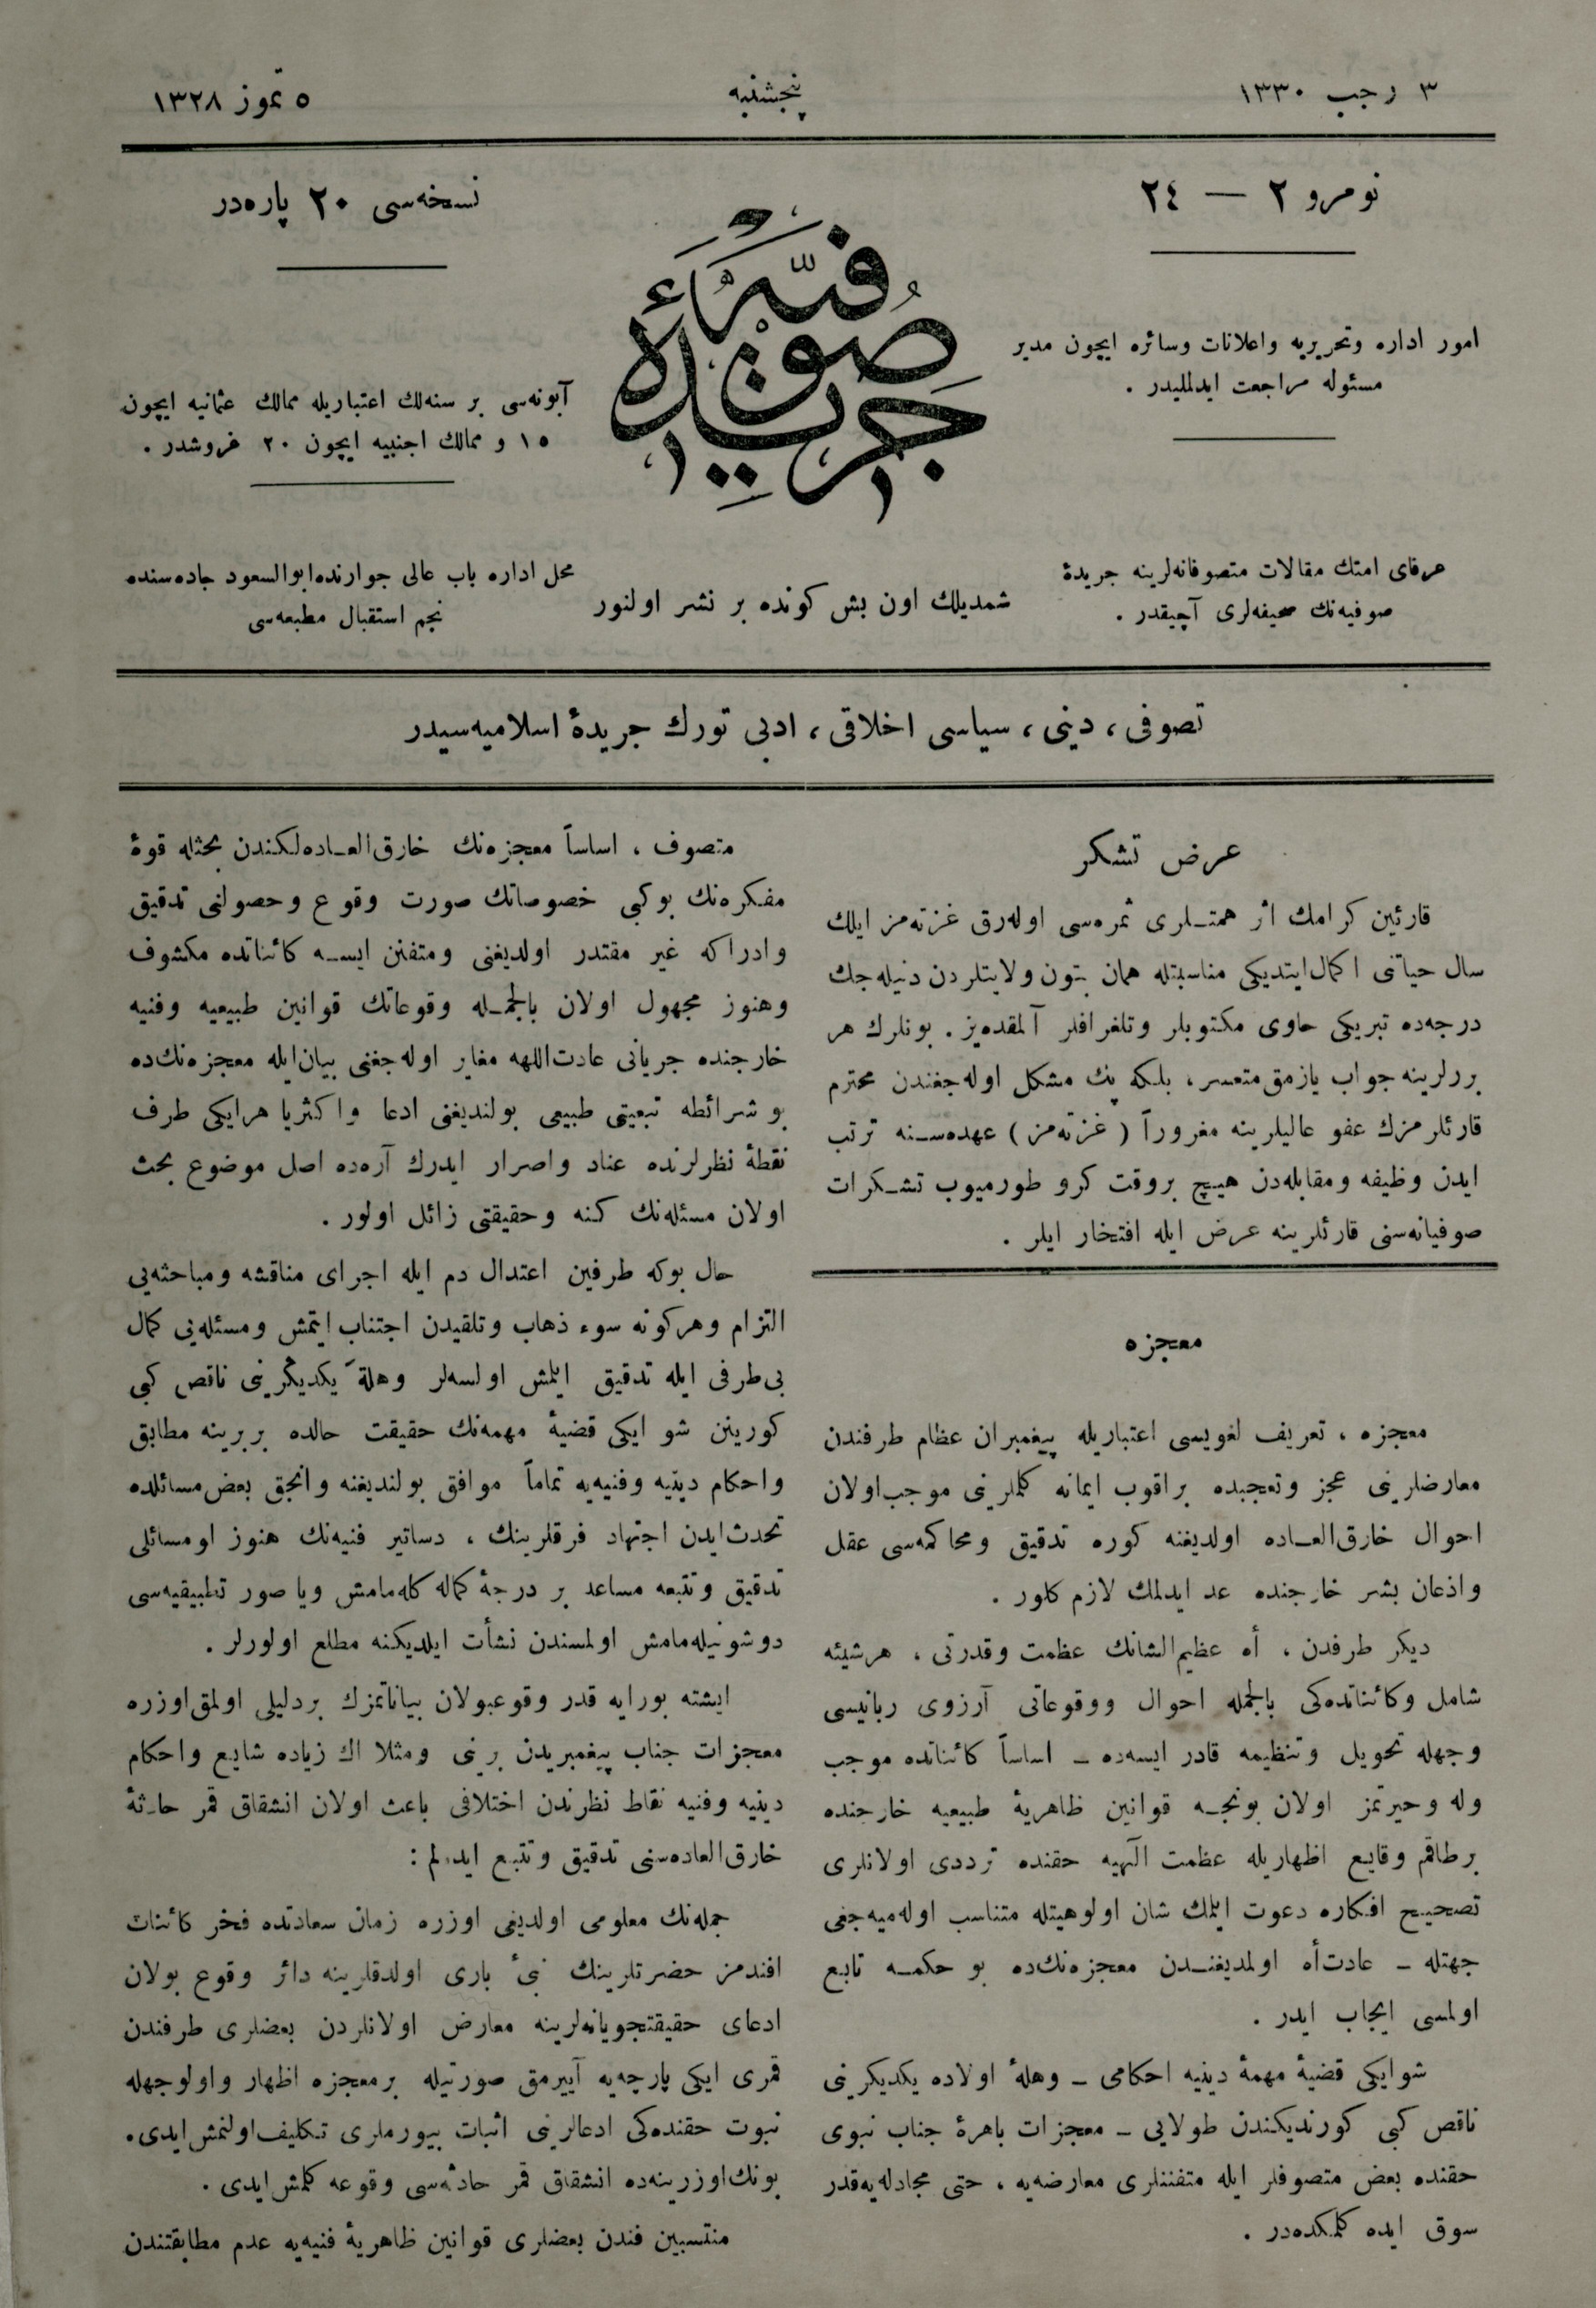 ٣ رجب ١٣٣٠
پنجشنبه
٥ تموز ١٣٢٨
نومرو ٢ — ٢٤
نسخه‌سی ٢٠ پاره‌در
جريدۀ صوفيه
امور اداره وتحريريه واعلانات وسائره ايچون مدير
مسئوله مراجعت ايدلمليدر .
آبونه‌سی بر سنه‌لك اعتباريله ممالك عثمانيه ايچون
١٥ و ممالك اجنبيه ايچون ٢٠ غروشدر .
عرفای امتك مقالات متصوفانه‌لرينه جريدۀ
صوفيه‌نك صحيفه‌لری آچيقدر .
شمديلك اون بش كونده بر نشر اولنور
محل اداره باب عالی جوارنده ابوالسعود جاده‌سنده
نجم استقبال مطبعه‌سی
تصوفی ، دينی ، سياسی اخلاقی ، ادبی تورك جريدۀ اسلاميه‌سيدر
عرض تشكر
قارئين كرامك اثر همتـلری ثمره‌سی اوله‌رق غزته‌مز ايلك
سال حياتنی اكمال ايتديكی مناسبتله همان بتون ولايتلردن دنيله‌جك
درجه‌ده تبريكی حاوی مكتوبلر وتلغرافلر آلمقده‌يز . بونلرك هر
بررلرينه جواب يازمق متعسر ، بلكه پك مشكل اوله‌جغندن محترم
قارئلرمزك عفو عاليلرينه مغروراً ( غزته‌مز ) عهده‌سـنه ترتب
ايدن وظيفه ومقابله‌دن هيچ بروقت كرو طورميوب تشـكرات
صوفيانه‌سنی قارئلرينه عرض ايله افتخار ايلر .
معجزه
معجزه ، تعريف لغويسی اعتباريله پيغمبران عظام طرفندن
معارضلرينی عجز وتعجبده براقوب ايمانه كلملرينی موجب اولان
احوال خارق‌العـاده اولديغنه كوره تدقيق ومحاكمه‌سی عقل
واذعان بشر خارجنده عد ايدلمك لازم كلور .
ديكر طرفدن ، الله عظيم‌الشانك عظمت وقدرتی ، هرشيئه
شامل وكائناتده‌كی بالجمله احوال ووقوعاتی آرزوی ربانيسی
وجهله تحويل وتنظيمه قادر ايسه‌ده ـ اساساً كائناتده موجب
وله وحيرتمز اولان بونجـه قوانين ظاهريۀ طبيعيه خارجنده
برطاقم وقايع اظهاريله عظمت آلهيه حقنده ترددی اولانلری
تصحيح افكاره دعوت ايلمك شان اولوهيتله متناسب اوله‌ميه‌جغی
جهتله ـ عادت‌الله اولمديغنـدن معجزه‌نك‌ده بو حكمـه تابع
اولمسی ايجاب ايدر .
شو ايكی قضيۀ مهمۀ دينيه احكامی ـ وهلۀ اولاده يكديكرينی
ناقص كبی كورنديكندن طولايی ـ معجزات باهرۀ جناب نبوی
حقنده بعض متصوفلر ايله متفننلری معارضه‌يه ، حتی مجادله‌يه‌قدر
سوق ايده كلمكده‌در .
متصوف ، اساساً معجزه‌نك خارق‌العـاده‌لكندن بحثله قوۀ
مفكره‌نك بوكبی خصوصاتك صورت وقوع وحصولنی تدقيق
وادراكه غير مقتدر اولديغنی ومتفنن ايسـه كائناتده مكشوف
وهنوز مجهول اولان بالجمـله وقوعاتك قوانين طبيعيه وفنيه
خارجنده جريانی عادت‌اللهه مغاير اوله‌جغنی بيان‌ايله معجزه‌نك‌ده
بو شرائطه تبعيتی طبيعی بولنديغنی ادعا واكثريا هرايكی طرف
نقطۀ نظرلرنده عناد واصرار ايدرك آره‌ده اصل موضوع بحث
اولان مسئله‌نك كنه وحقيقتی زائل اولور .
حال بوكه طرفين اعتدال دم ايله اجرای مناقشه ومباحثه‌يی
التزام وهركونه سوء ذهاب وتلقيدن اجتناب ايتمش ومسئله‌يی كمال
بی‌طرفی ايله تدقيق ايلمش اولسه‌لر وهلةً يكديگرينی ناقص كبی
كورينن شو ايكی قضيۀ مهمه‌نك حقيقت حالده بربرينه مطابق
واحكام دينيه وفنيه‌يه تماماً موافق بولنديغنه وانجق بعض مسائلده
تحدث ايدن اجتهاد فرقلرينك ، دساتير فنيه‌نك هنوز اومسائلی
تدقيق وتتبعه مساعد بر درجۀ كماله كله‌مامش ويا صور تطبيقيه‌سی
دوشونيله‌مامش اولمسندن نشأت ايلديكنه مطلع اولورلر .
ايشته بورايه قدر وقوعبولان بياناتمزك بردليلی اولمق اوزره
معجزات جناب پيغمبريدن برينی ومثلا اك زياده شايع واحكام
دينيه وفنيه نقاط نظرندن اختلافی باعث اولان انشقاق قمر حادثۀ
خارق‌العاده‌سنی تدقيق وتتبع ايدەلم :
جمله‌نك معلومی اولديغی اوزره زمان سعادتده فخر كائنات
افندمز حضرتلرينك نبیٔ باری اولدقلرينه دائر وقوع بولان
ادعای حقيقتجويانه‌لرينه معارض اولانلردن بعضلری طرفندن
قمری ايكی پارچه‌يه آييرمق صورتيله برمعجزه اظهار واولوجهله
نبوت حقنده‌كی ادعالرينی اثبات بيورملری تكليف اولنمش ايدی.
بونك اوزرينه‌ده انشقاق قمر حادثه‌سی وقوعه كلمش ايدی .
منتسبين فندن بعضلری قوانين ظاهريۀ فنيه‌يه عدم مطابقتندن